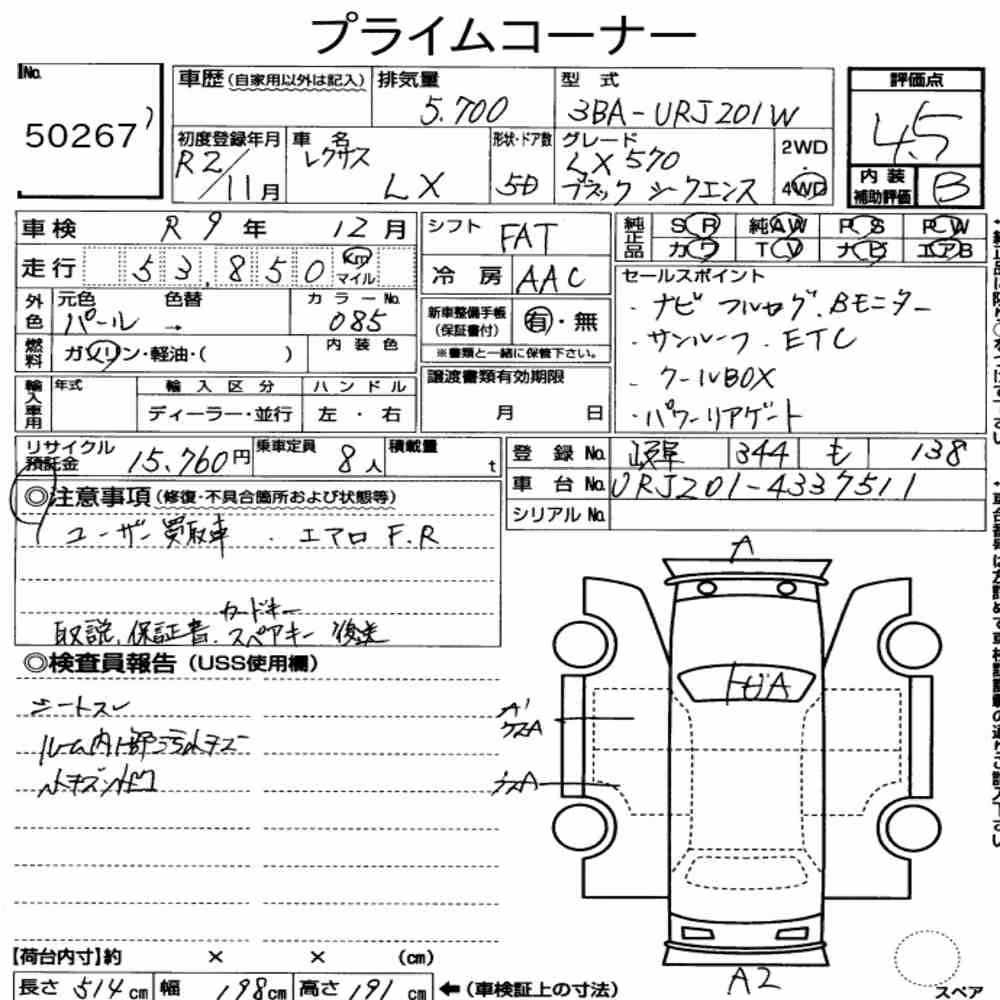 プライムコーナー
No. 50267
車歴(自家用以外は記入)
排気量 5.700
型式 3BA-URJ201W
評価点 4.5
初度登録年月 R2/11月
車名 レクサス LX
形状・ドア数 5D
グレード LX570 ブラックシークエンス
2WD・4WD
内装補助評価 B
車検 R 9年 12月
シフト FAT
純正品 SR 純AW PS PW
カワ TV ナビ エアB
走行 53,850 km マイル
冷房 AAC
セールスポイント
・ナビ フルセグ.Bモニター
・サンルーフ.ETC
・クールBOX
・パワーリアゲート
外色 元色 パール 色替 → カラーNo. 085
新車整備手帳(保証書付) 有・無
※書類と一緒に保管下さい。
燃料 ガソリン・軽油・( ) 内装色
譲渡書類有効期限 月 日
輸入車用 年式 輸入区分 ハンドル
ディーラー・並行 左・右
リサイクル預託金 15,760円
乗車定員 8人
積載量 t
登録No. 岐阜 344 も 138
車台No. URJ201-4337511
シリアルNo.
◎注意事項(修復・不具合箇所および状態等)
ユーザー買取車 . エアロF.R
カードキー
取説、保証書、スペアキー 後送
◎検査員報告(USS使用欄)
シートスレ
ルーム内小部汚れキズ
小キズ小凹
A
トビA
A'
クスA
クスA
A2
【荷台内寸】約 × × (cm)
長さ 514cm 幅 198cm 高さ 191cm ←(車検証上の寸法)
スペア